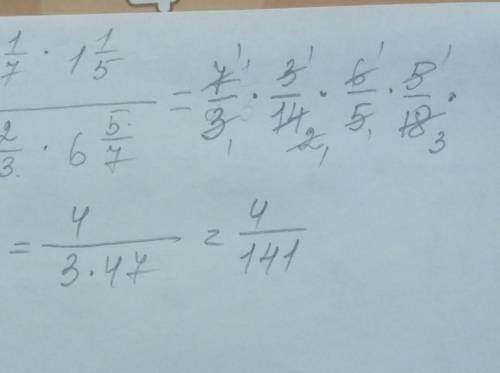 1/7 · 1 1/5
2/3 · 6 5/7
= 7/3 · 3/14 · 6/5 · 5/18 ·
= 4/(3·47) = 4/141